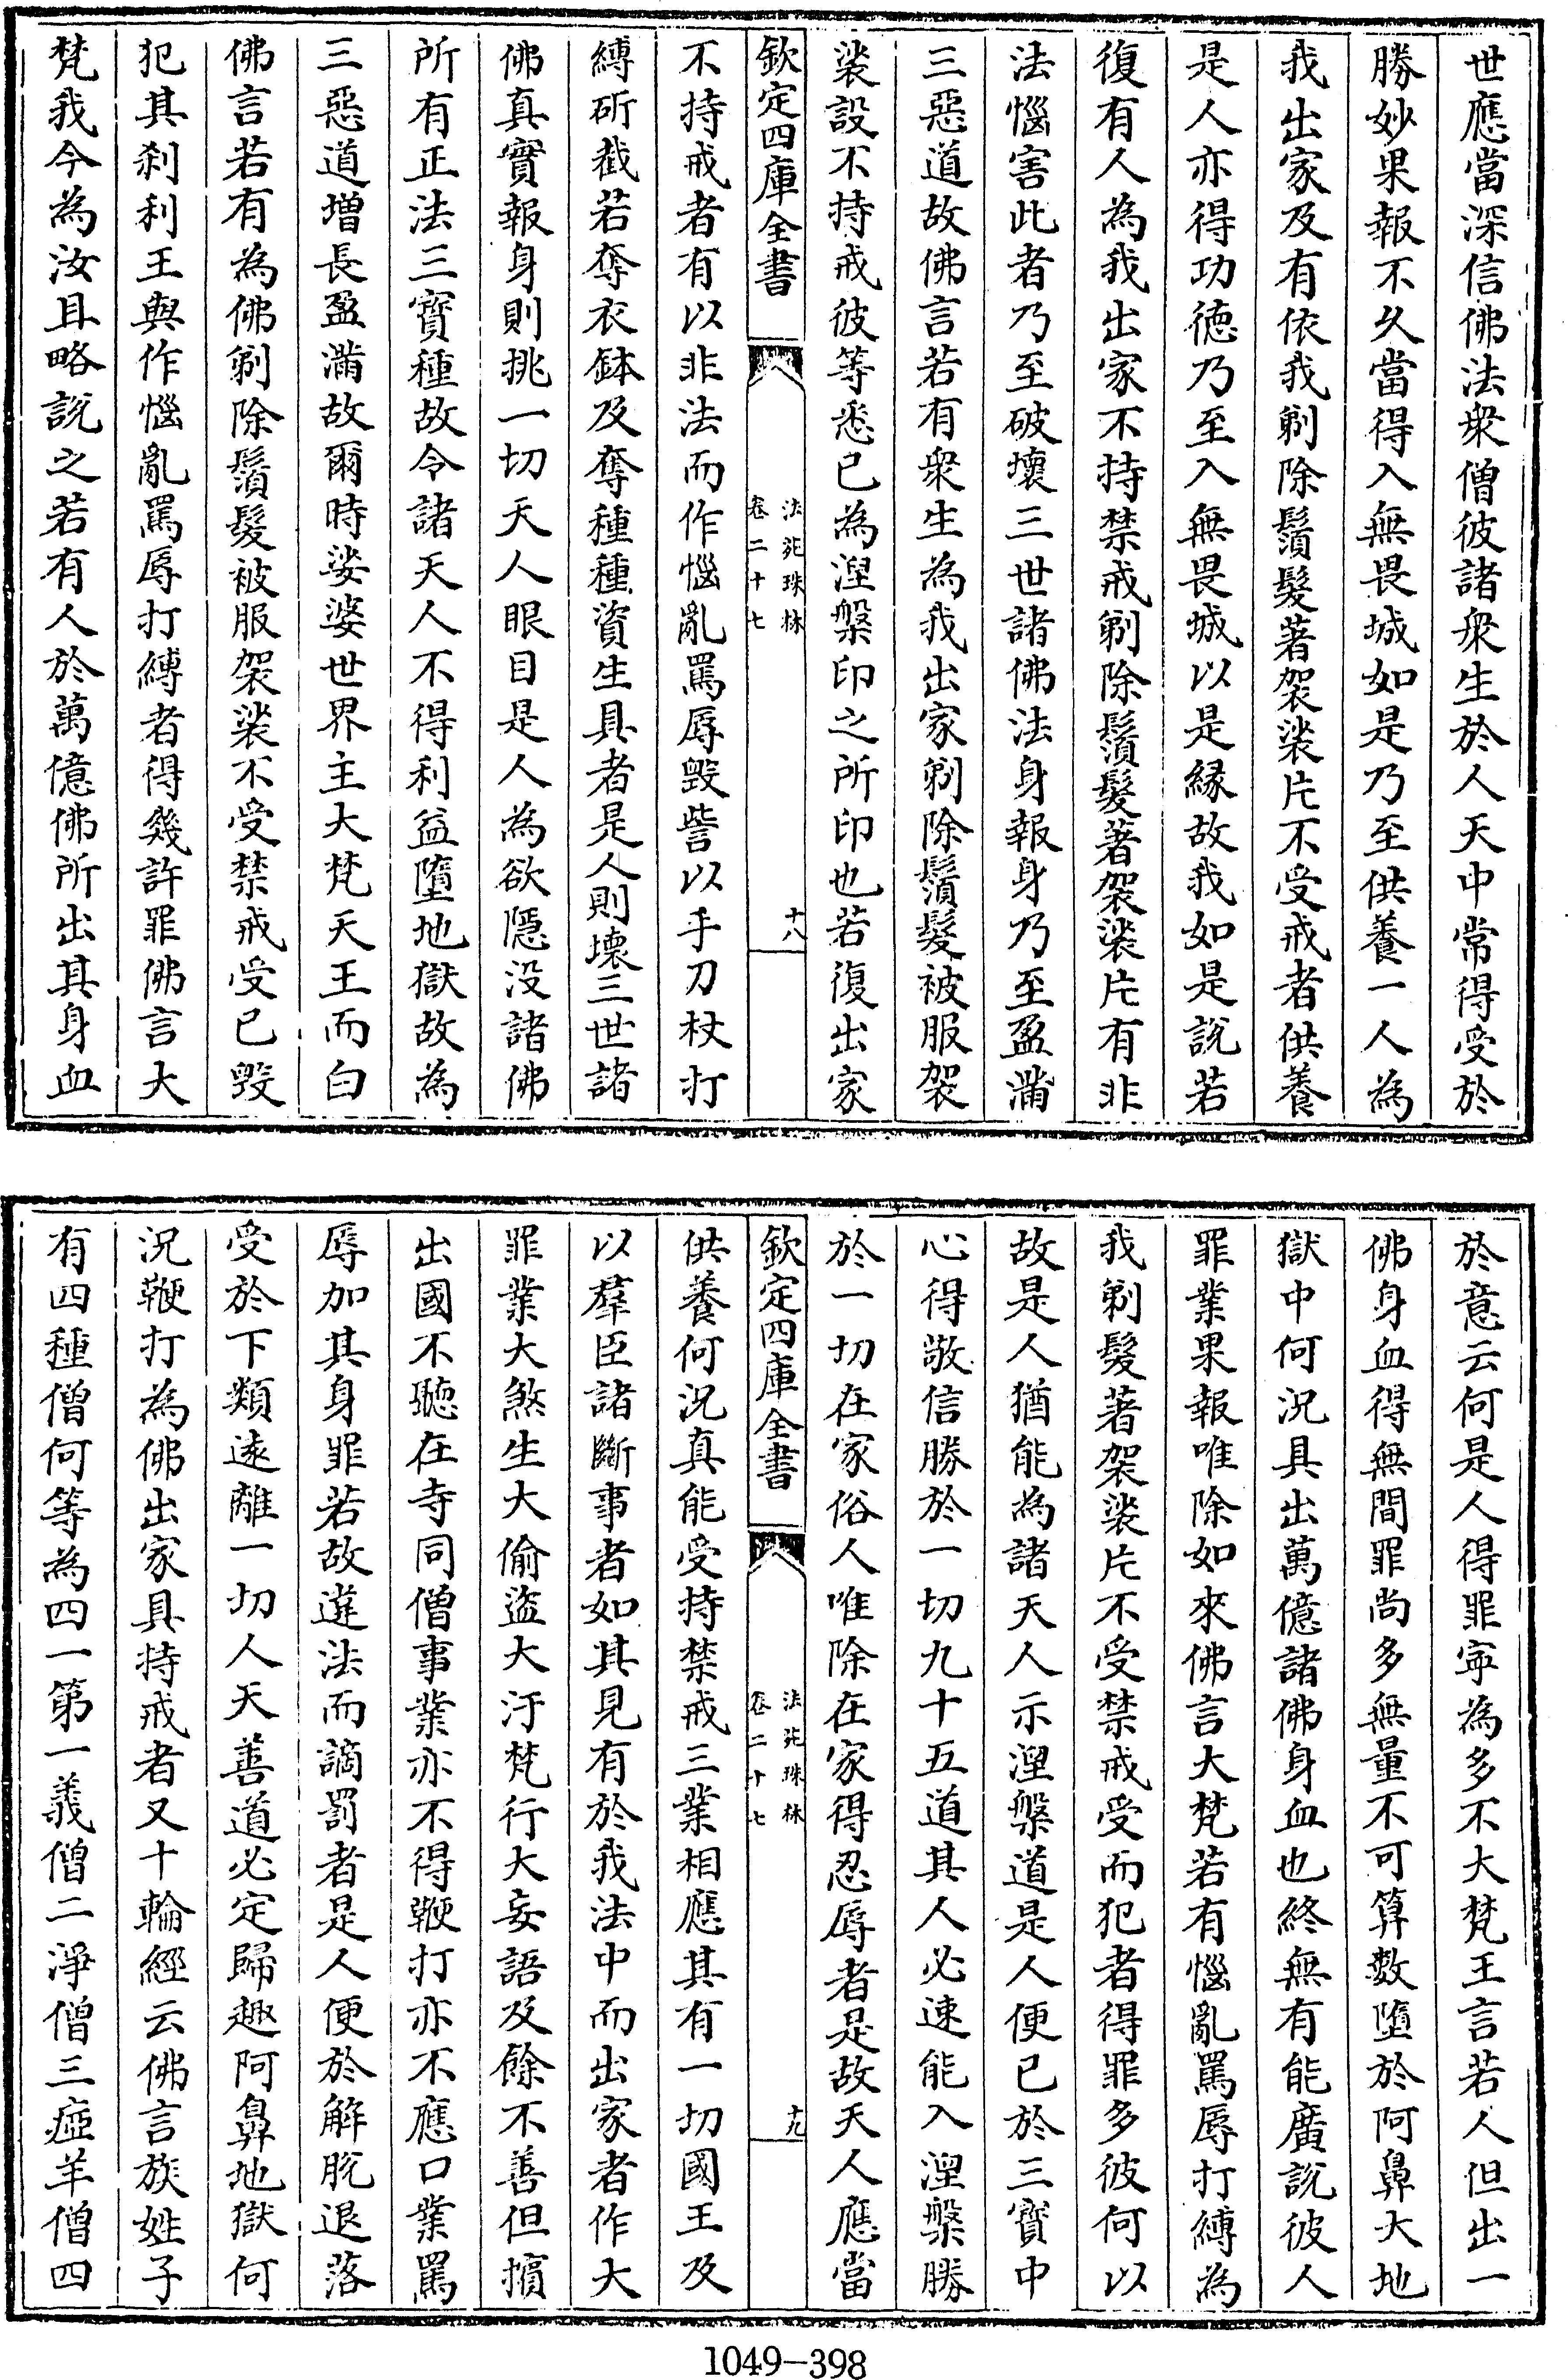 世應當深信佛法衆僧彼諸衆生於人天中常得受於
勝妙果報不久當得入無畏城如是乃至供養一人為
我出家及有依我剃除鬚髮著袈裟片不受戒者供養
是人亦得功徳乃至入無畏城以是縁故我如是說若
復有人為我出家不持禁戒剃除鬚髮著袈裟片有非
法惱害此者乃至破壞三世諸佛法身報身乃至盈滿
三惡道故佛言若有衆生為我出家剃除鬚髮被服袈
裟設不持戒彼等悉已為涅槃印之所印也若復出家
欽定四庫全書
法苑珠林
卷二十七
十八
不持戒者有以非法而作惱亂罵辱毀訾以手刀杖打
縛斫截若奪衣鉢及奪種種資生具者是人則壞三世諸
佛真實報身則挑一切天人眼目是人為欲隱没諸佛
所有正法三寳種故令諸天人不得利益墮地獄故為
三惡道増長盈滿故爾時娑婆世界主大梵天王而白
佛言若有為佛剃除鬚髮被服袈裟不受禁戒受已毀
犯其刹利王與作惱亂罵辱打縛者得幾許罪佛言大
梵我今為汝且略說之若有人於萬億佛所出其身血
於意云何是人得罪寜為多不大梵王言若人但出一
佛身血得無間罪尚多無量不可算數墮於阿鼻大地
獄中何況具出萬億諸佛身血也終無有能廣說彼人
罪業果報唯除如來佛言大梵若有惱亂罵辱打縛為
我剃髮著袈裟片不受禁戒受而犯者得罪多彼何以
故是人猶能為諸天人示涅槃道是人便已於三寳中
心得敬信勝於一切九十五道其人必速能入涅槃勝
於一切在家俗人唯除在家得忍辱者是故天人應當
欽定四庫全書
法苑珠林
卷二十七
十九
供養何況真能受持禁戒三業相應其有一切國王及
以羣臣諸斷事者如其見有於我法中而出家者作大
罪業大煞生大偷盜大汙梵行大妄語及餘不善但擯
出國不聽在寺同僧事業亦不得鞭打亦不應口業罵
辱加其身罪若故違法而謫罰者是人便於解脫退落
受於下類遠離一切人天善道必定歸趣阿鼻地獄何
況鞭打為佛出家具持戒者又十輪經云佛言族姓子
有四種僧何等為四一第一義僧二淨僧三瘂羊僧四
1049-398